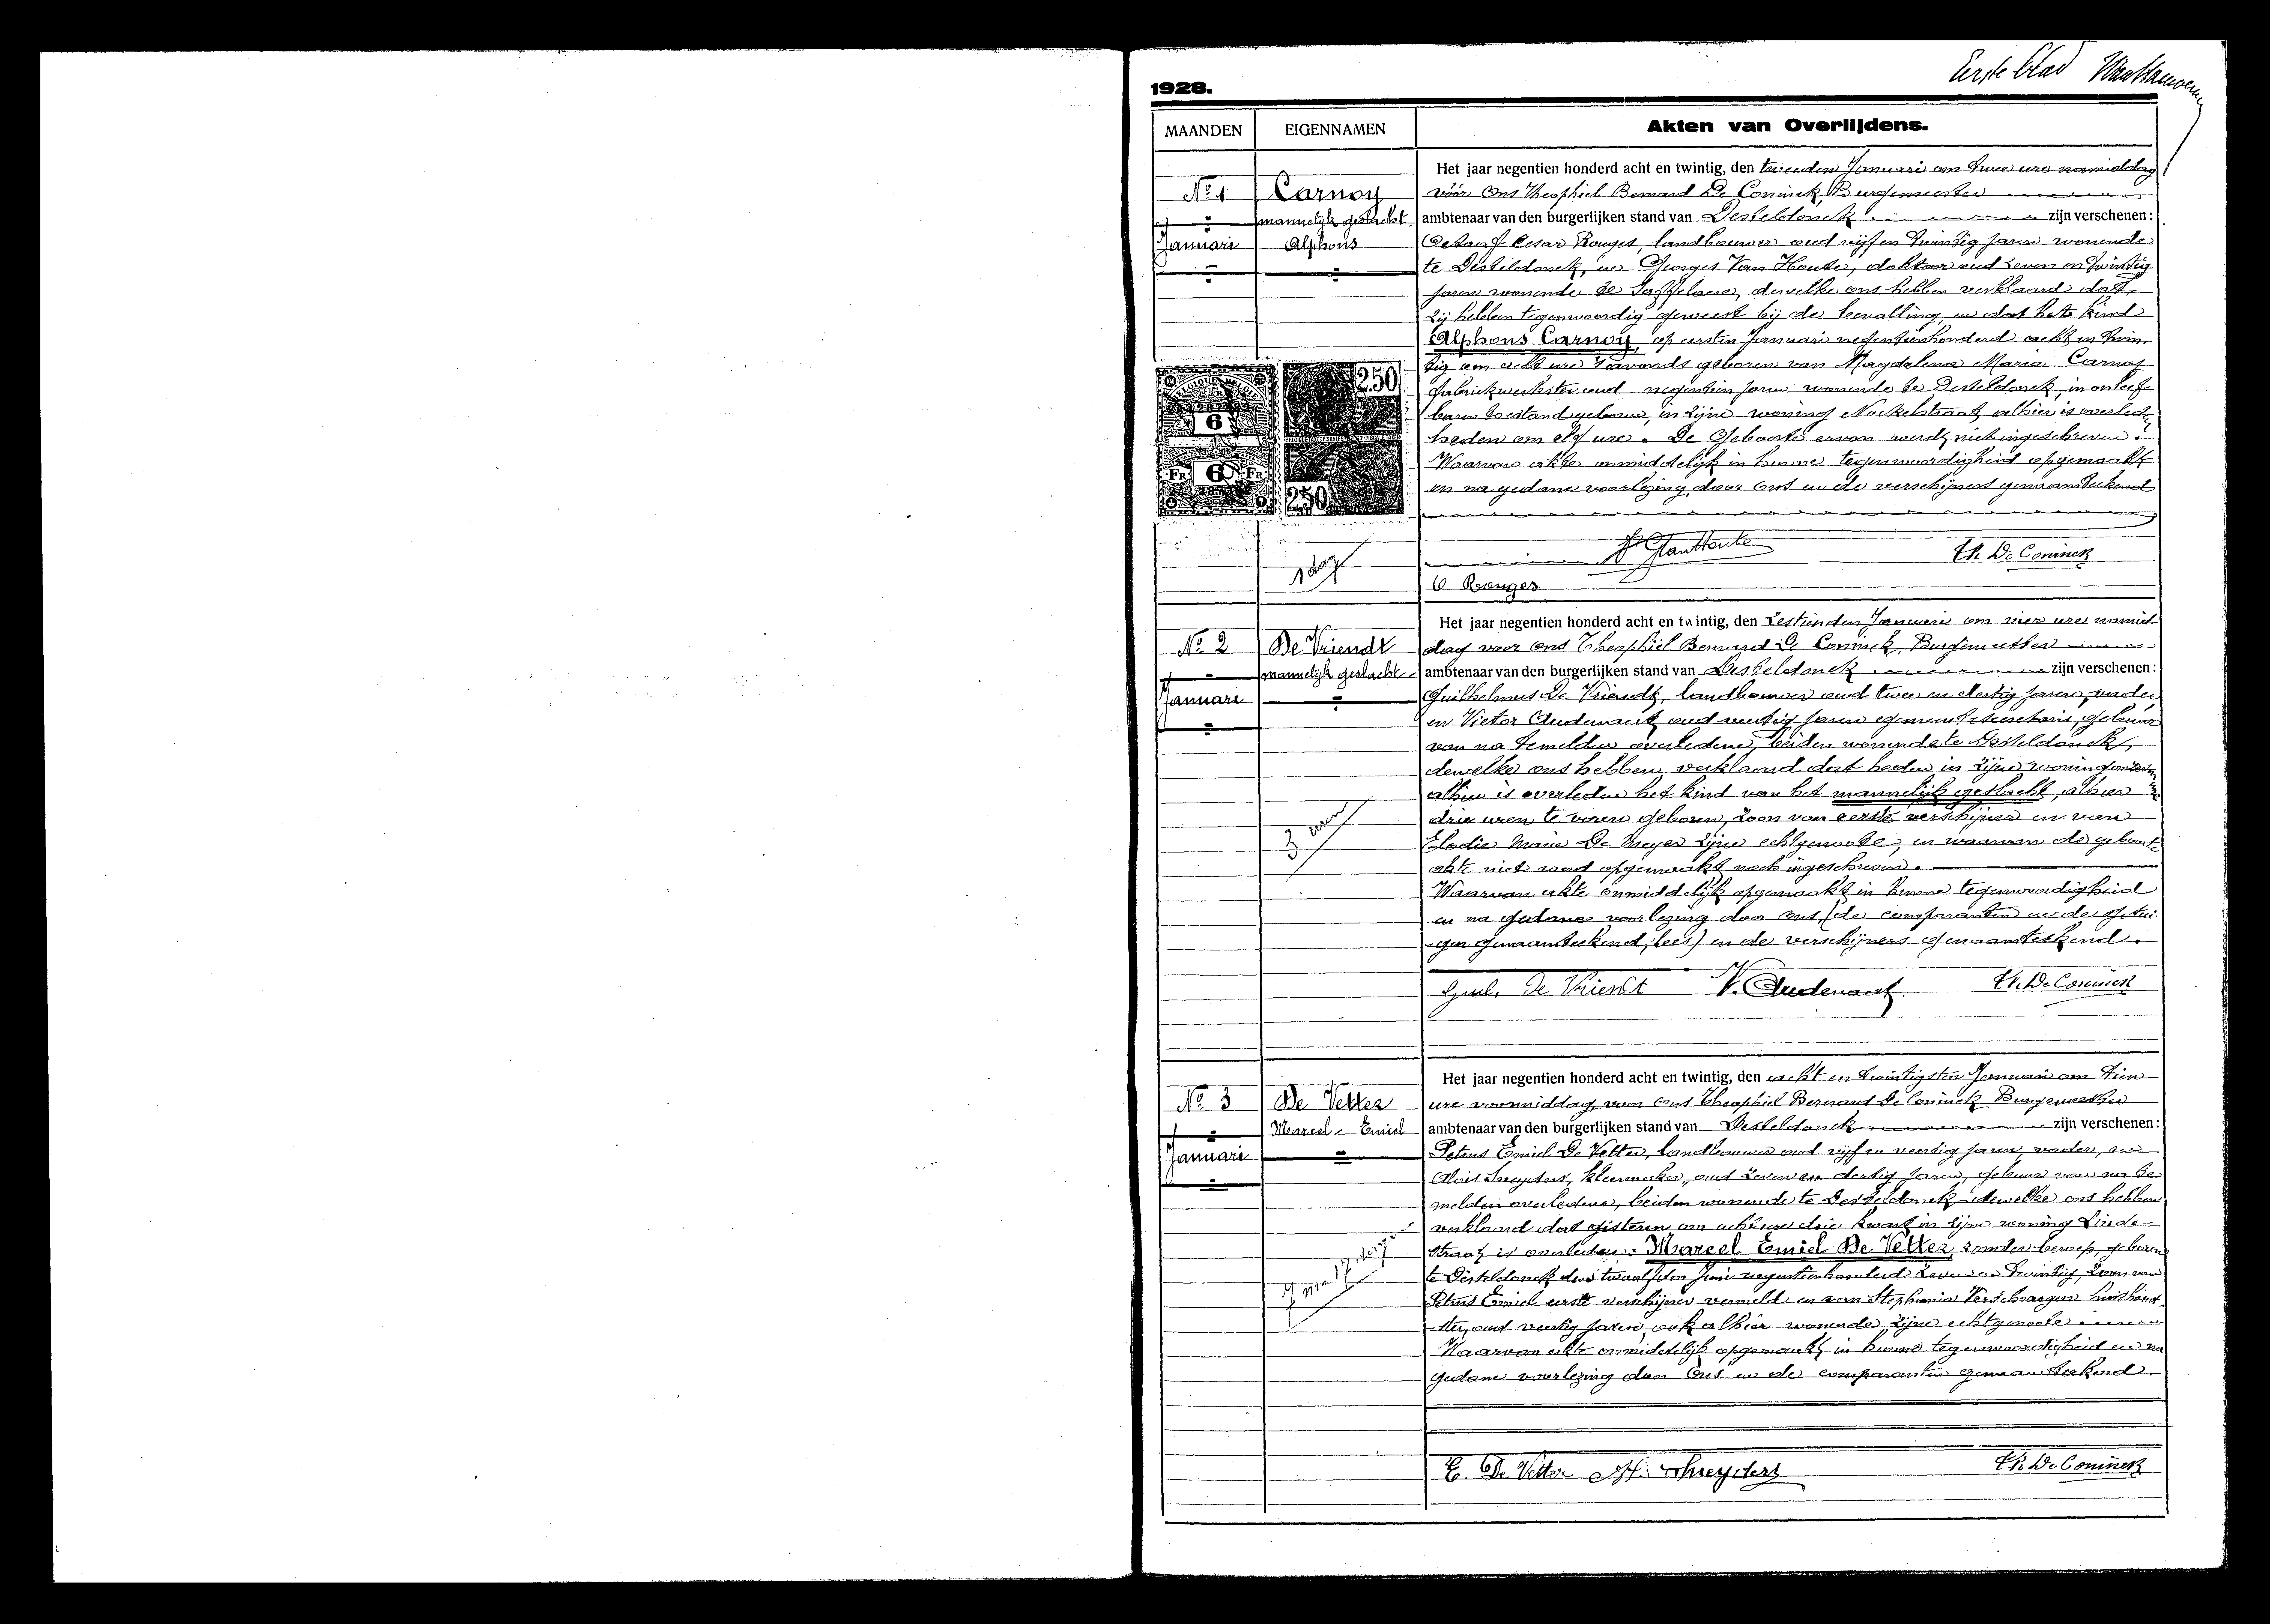 Eerste blad
1928.
MAANDEN
EIGENNAMEN
Akten van Overlijdens.
No 1
Januari
Carnoy
mannelijk geslacht
Alphons
Het jaar negentien honderd acht en twintig, den tweeden Januari om twee ure namiddag
vóór Ons Theophiel Bernard De Coninck, Burgemeester
ambtenaar van den burgerlijken stand van Desteldonck zijn verschenen:
Octaaf Cesar Rouges, landbouwer oud vijf en twintig jaren wonende
te Desteldonck, en Georges Van Houte, doktoor oud zeven en twintig
jaren wonende te Saffelaere, dewelke ons hebben verklaard dat
zij hebben tegenwoordig geweest bij de bevalling en dat het kind
Alphons Carnoy, op eersten Januari negentienhonderd acht en twin-
tig om acht ure 's avonds geboren van Magdalena Maria Carnoy
fabriekwerkster oud negentien jaren wonende te Desteldonck, in onleef
baren toestand geboren, in zijne woning straat alhier is overleden
heden om elf ure. De Geboorte ervan werd niet ingeschreven.
Waarvan akte onmiddelijk in hunne tegenwoordigheid opgemaakt
en na gedane voorlezing, door Ons en de verschijners genaamteekend
BELGIQUE BELGIË
6
FR 6 FR
250
250
1 dag
G VanHoute
Th. De Coninck
O Rouges
No 2
Januari
De Vriendt
mannelijk geslacht
Het jaar negentien honderd acht en twintig, den zestienden Januari om vier ure namid
dag voor Ons Theophiel Bernard De Coninck, Burgemeester
ambtenaar van den burgerlijken stand van Desteldonck zijn verschenen:
Guilhelmus De Vriendt, landbouwer oud twee en dertig jaren, vader
en Victor Audenaert, oud veertig jaren gemeentesecretaris, gebuur
van na temelden overledene, beiden wonende te Desteldonck,
dewelke ons hebben verklaard dat heden in zijne woning
alhier is overleden het kind van het mannelijk geslacht, alhier
drie uren te voren geboren, zoon van eerste verschijner en van
Elodie Marie De Meyer zijne echtgenoote, en waarvan de geboorte
akte niet werd opgemaakt noch ingeschreven.
Waarvan akte onmiddelijk opgemaakt in hunne tegenwoordigheid
en na gedane voorlezing door Ons, (de comparanten en de getui-
gen genaamteekend; lees) en de verschijners genaamteekend.
3 uren
Guil. De Vriendt
V. Audenaert
Th. De Coninck
No 3
Januari
De Vetter
Marcel Emiel
Het jaar negentien honderd acht en twintig, den acht en twintigsten Januari om tien
ure voormiddag, voor Ons Theophiel Bernard De Coninck Burgemeester
ambtenaar van den burgerlijken stand van Desteldonck zijn verschenen:
Petrus Emiel De Vetter, landbouwer oud vijf en veertig jaren, vader, en
Alois Sneyders, kleermaker, oud zeven en dertig jaren, gebuur van na te
melden overledene, beiden wonende te Desteldonck dewelke ons hebben
verklaard dat gisteren om acht ure drie kwart in zijne woning Linde-
straat is overleden: Marcel Emiel De Vetter, zonder beroep, geboren
te Desteldonck den twaalfden Juni negentienhonderd zeven en twintig, zoon van
Petrus Emiel eerste verschijner vermeld en van Stephania Verschraegen huishoud-
ster, oud veertig jaren, ook alhier wonende, zijne echtgenoote
Waarvan akte onmiddelijk opgemaakt in hunne tegenwoordigheid en na
gedane voorlezing door Ons en de comparanten genaamteekend.
E. De Vetter
Sneyders
Th. De Coninck